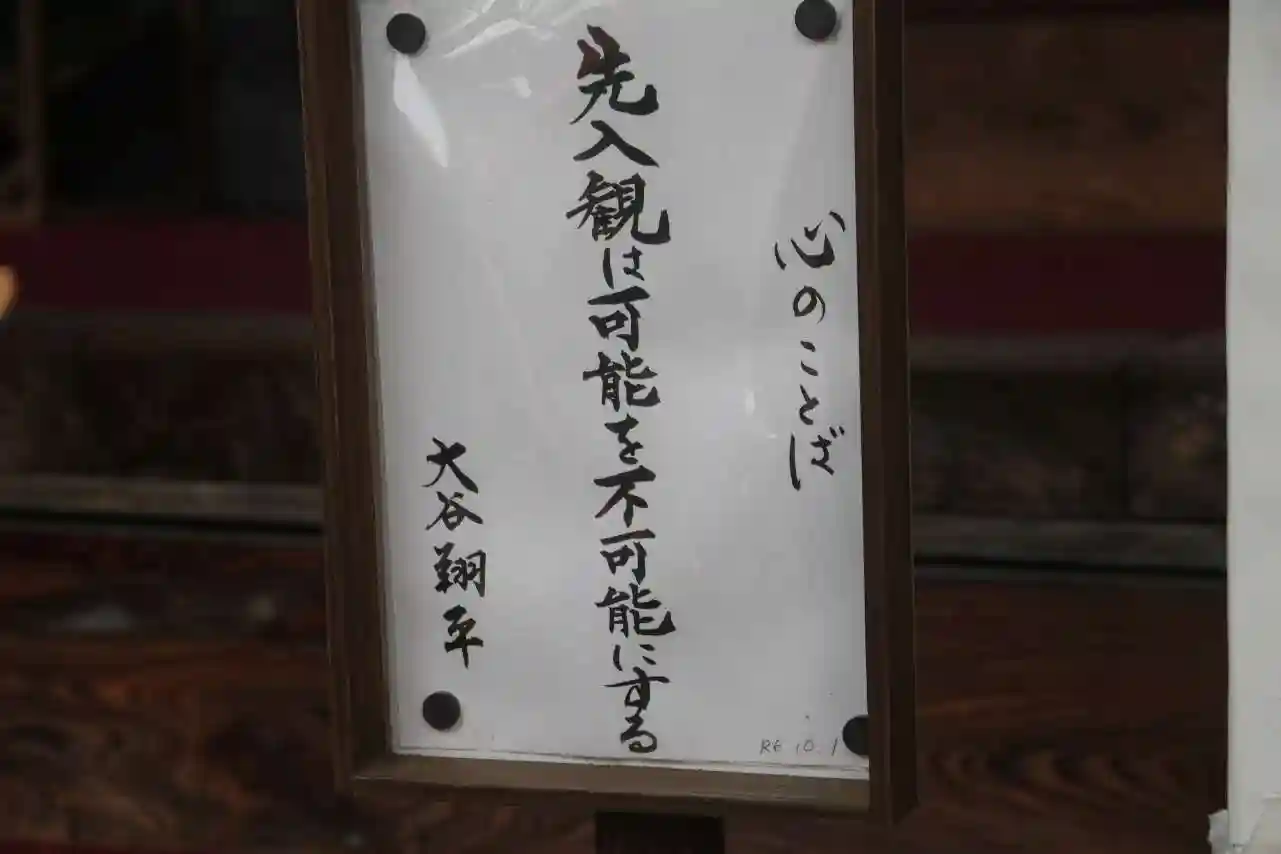 心のことば
先入観は可能を不可能にする
大谷翔平
R6.10.1